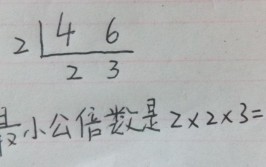 2 4 6
2 3
最小公倍数是2×2×3=